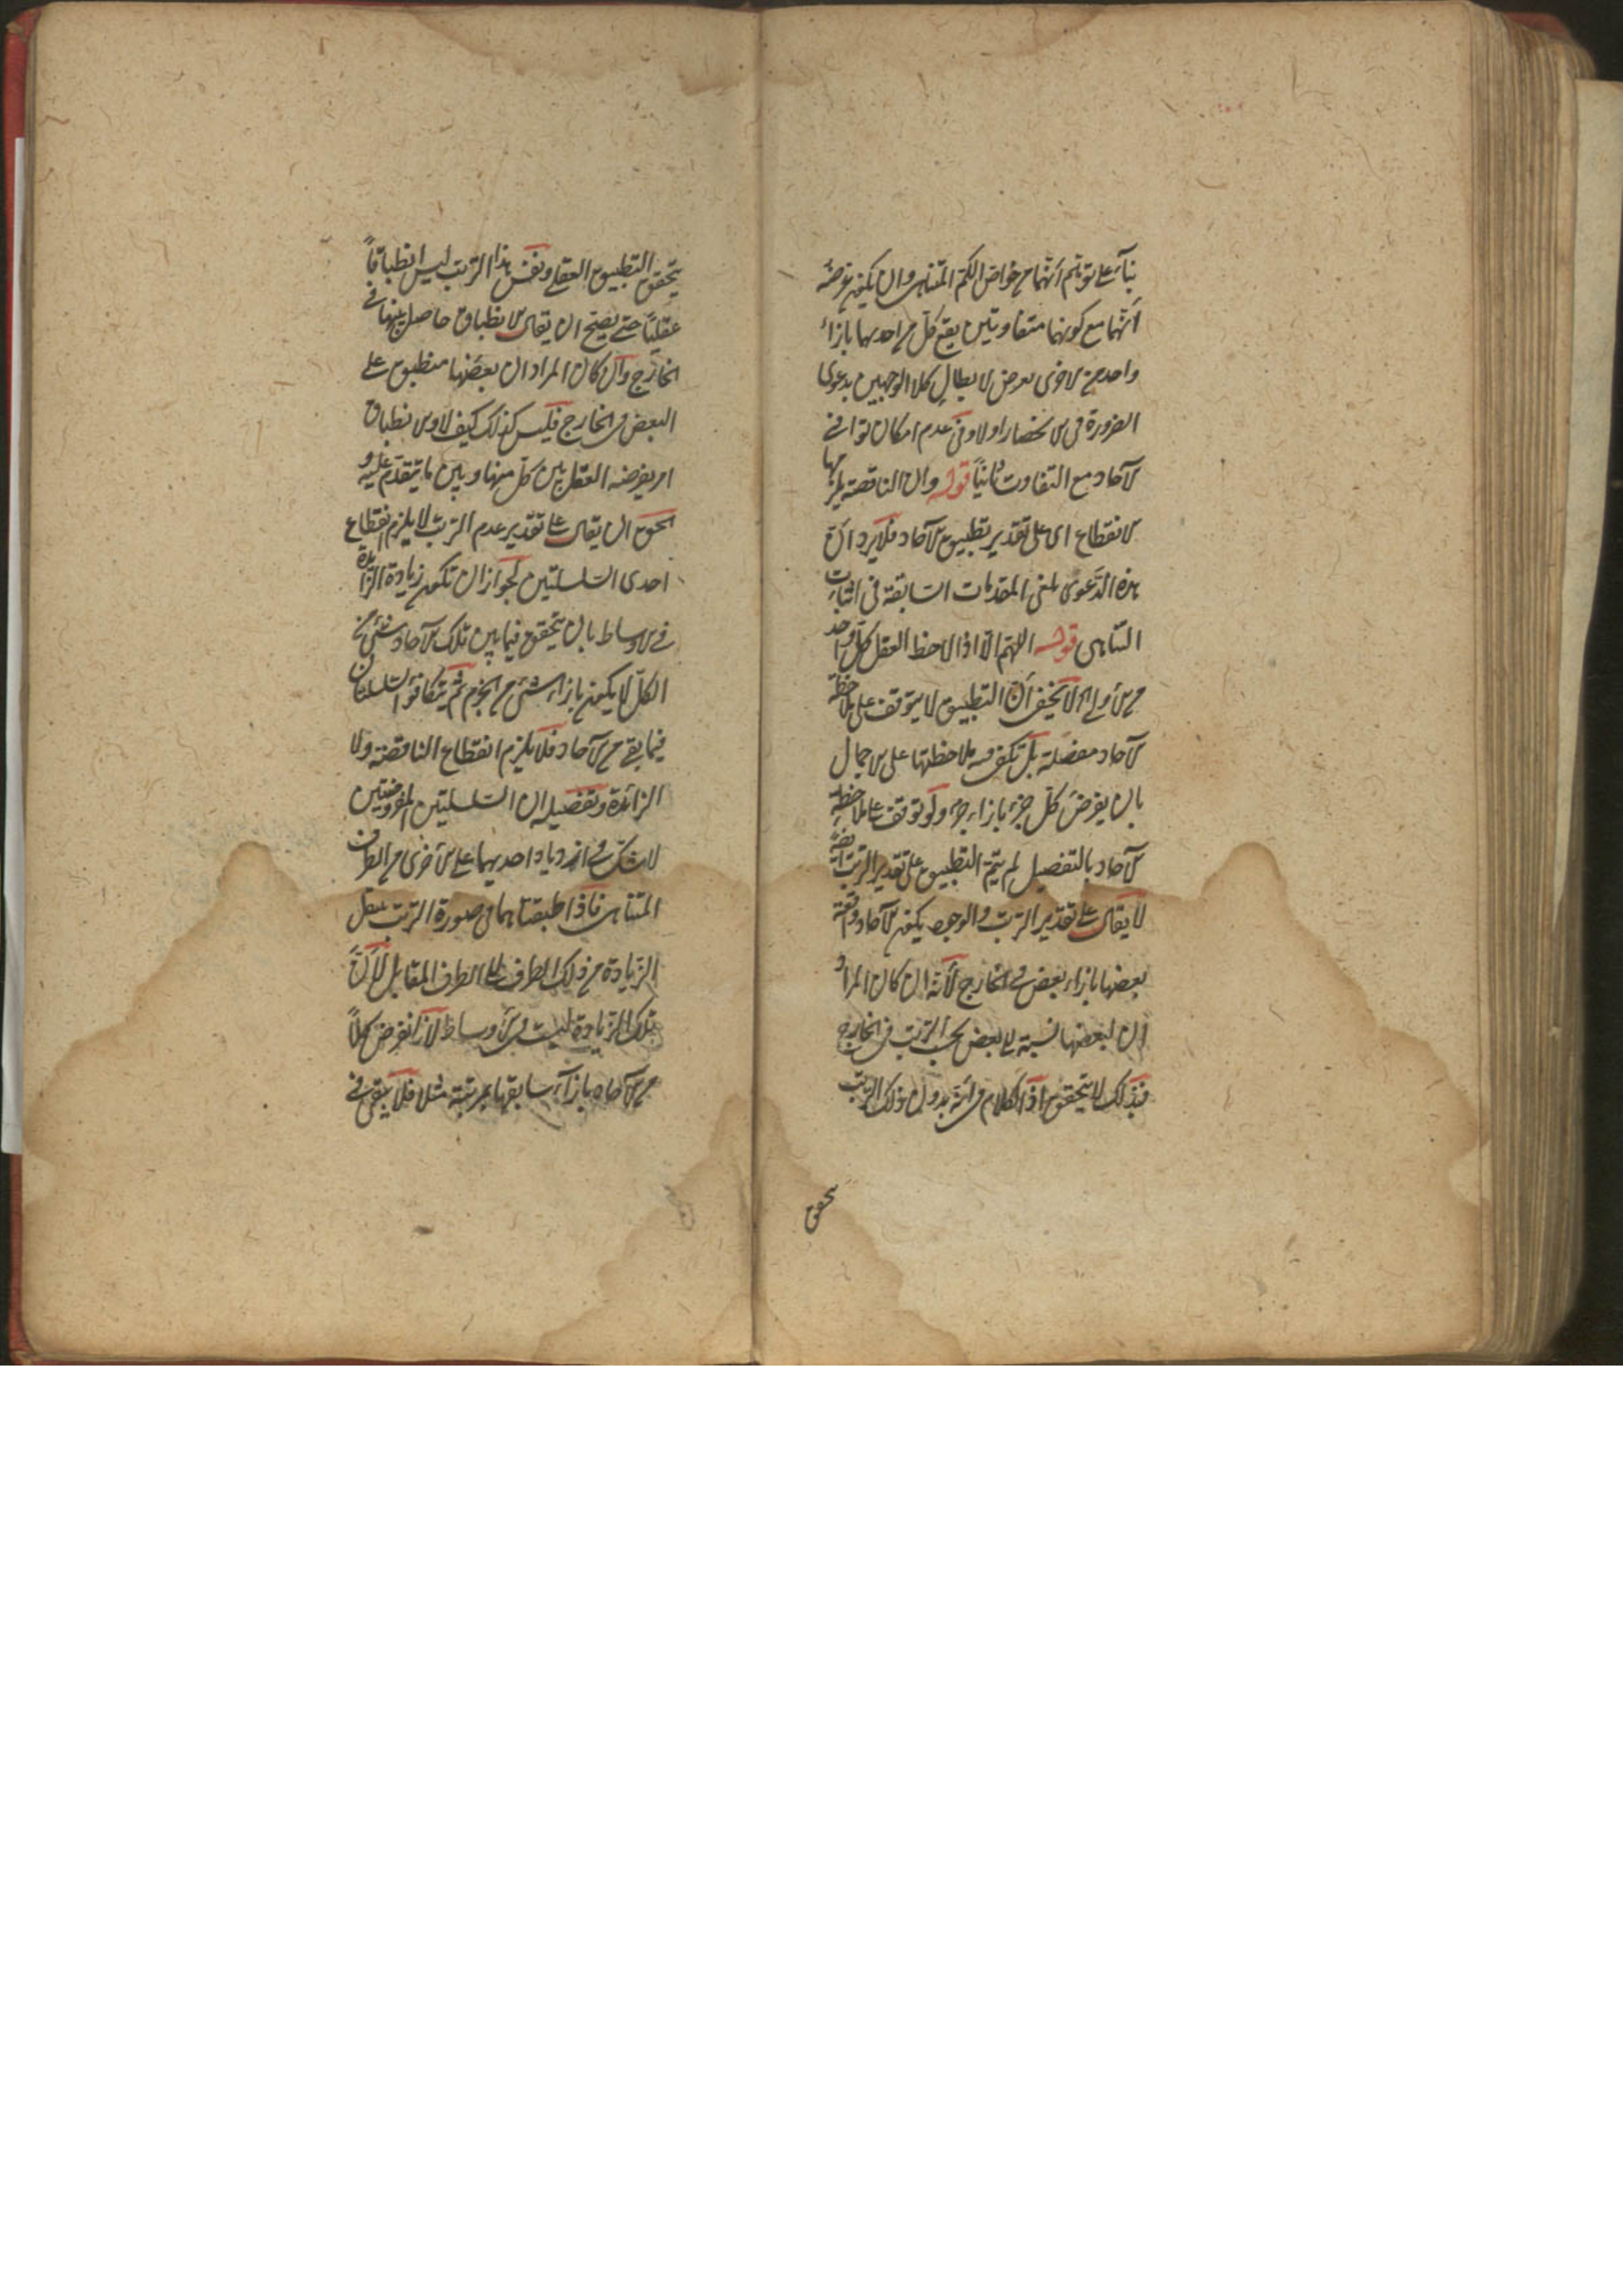 بناء على توهم أنهما من خواص الكم المتناهى وان يكون غرضه
أنهما مع كونهما متفاوتين يقع كل من احديهما بازاء
واحد من الاخرى تعرض لابطال كلا الوجهين بدعوى
الضرورة فى الانحصار اولا وفى عدم امكان توافى
الآحاد مع التفاوت ثانياً قوله وان الناقصة يلزمها
الانقطاع اى على تقدير تطبيق الآحاد فلا يرد أن
هذه الدعوى تلغى المقدمات السابقة فى اثبات
التناهى قوله اللهم الا اذا لاحظ العقل كل واحد
من الأولى الخ لا يخفى أن التطبيق لا يتوقف على ملاحظة
الآحاد مفصلة بل تكفى فيه ملاحظتها على الاجمال
بان يفرض كل جزء بازاء جزء ولو توقف على ملاحظة
الآحاد بالتفصيل لم يتم التطبيق على تقدير الترتب ايضاً
لا يقال على تقدير الترتب والوجود يكون الآحاد واقعة
بعضها بازاء بعض فى الخارج لأنه ان كان المراد
ان لبعضها نسبة الى بعض بحسب الترتب فى الخارج
فبذلك لا يتحقق اذ الكلام فى انه بدون ذلك الترتب
يتحقق
يتحقق التطبيق العقلى ونفس هذا الترتب ليس انطباقاً
عقلياً حتى يصح ان يقال الانطباق حاصل بينهما فى
الخارج وان كان المراد ان بعضها منطبق على
البعض فى الخارج فليس كذلك كيف لا والانطباق
امر يفرضه العقل بين كل منها وبين ما يتقدم عليه و
الحق ان يقال على تقدير عدم الترتب لا يلزم انقطاع
احدى السلسلتين لجواز ان تكون زيادة الزائدة
فى الاوساط بان يتحقق فيما بين تلك الآحاد شئ من
الكل لا يكون بازائه شئ من الجزء ثم يتكافؤ السلسلتان
فيما بقى من الآحاد فلا يلزم انقطاع الناقصة ولا
الزائدة وتفصيله ان السلسلتين المفروضتين
لا شك فى ازدياد احديهما على الأخرى من الطرف
المتناهى فاذا طبقناهما فى صورة الترتب ينتقل
الزيادة من ذلك الطرف الى الطرف المقابل لأن
تلك الزيادة ليست فى الأوساط لانا نفرض كلاً
من الآحاد بازاء سابقها بمرتبة مثلا فلا يبقى فى